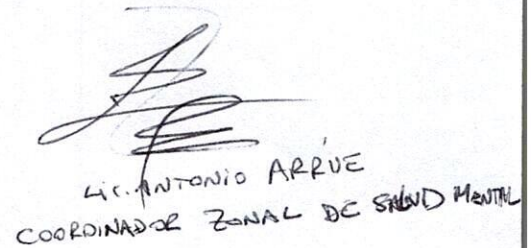 Lic. ANTONIO ARRÚE
COORDINADOR ZONAL DE SALUD MENTAL